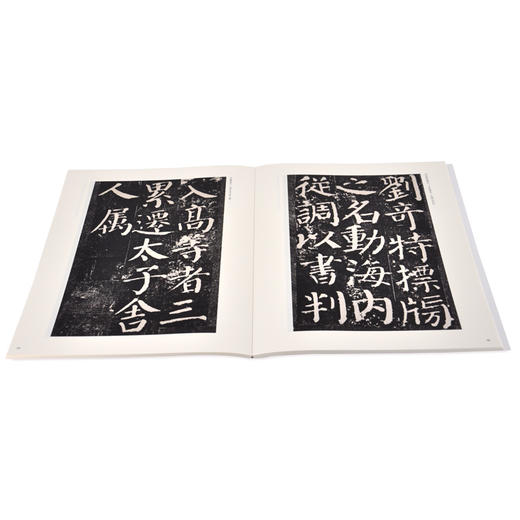 劉奇特標牓
之名動海内
從調以書判
入高等者三
累遷太子舍
人属